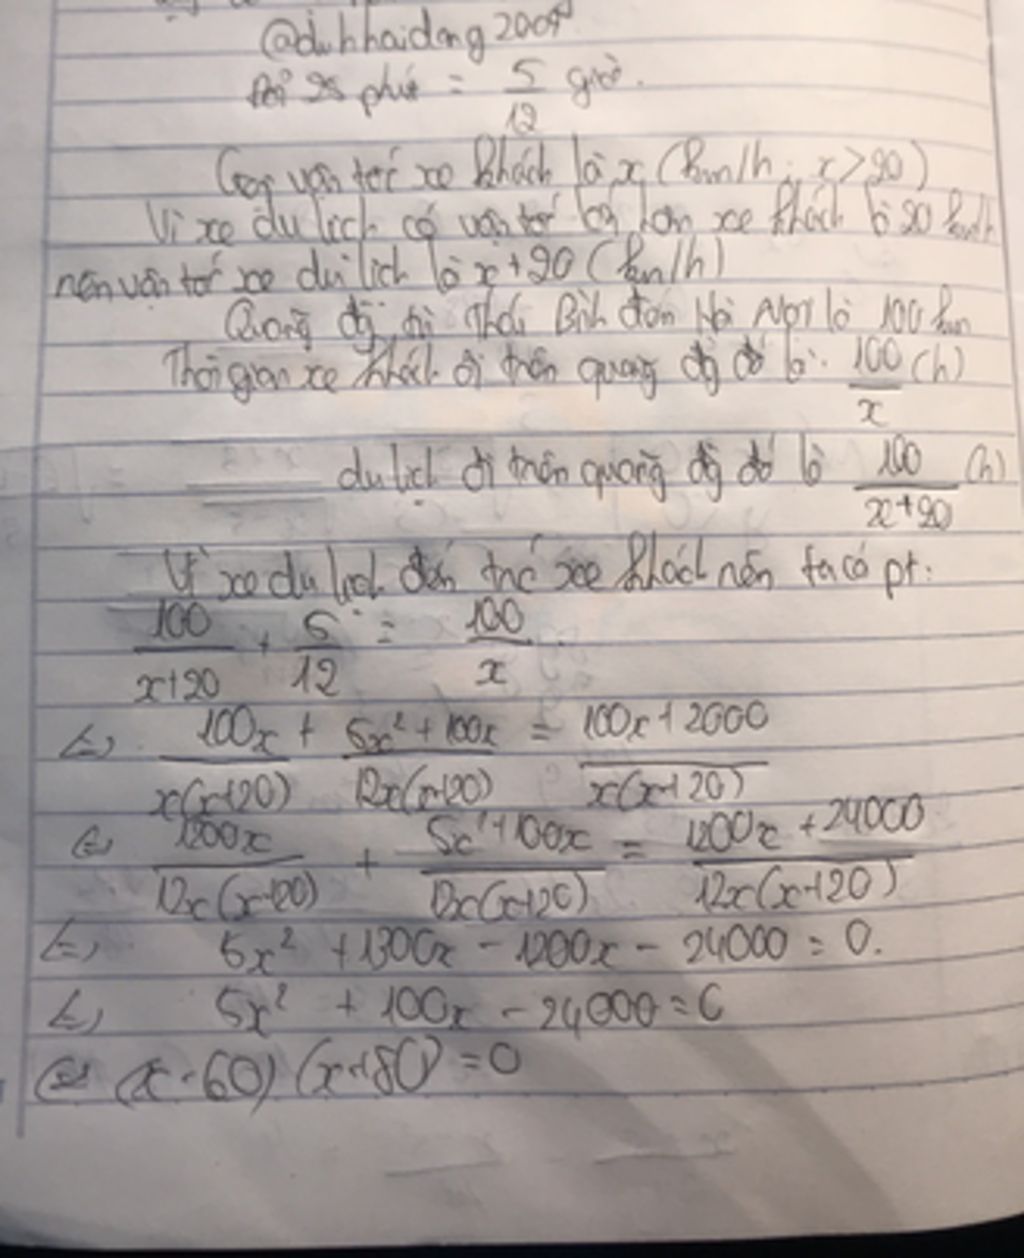 @duhhaidang2009
Đổi 25 phút = 5/12 giờ.
Gọi vận tốc xe khách là x (km/h; x>20)
Vì xe du lịch có vận tốc lớn hơn xe khách là 20 km/h
nên vận tốc xe du lịch là x+20 (km/h)
Quãng đg từ Thái Bình đến Hà Nội là 100 km
Thời gian xe khách đi trên quãng đg đó là: 100/x (h)
du lịch đi trên quãng đg đó là 100/(x+20) (h)
Vì xe du lịch đến trước xe khách nên ta có pt:
100/(x+20) + 5/12 = 100/x
<=> 100x/(x(x+20)) + (5x²+100x)/(12x(x+20)) = (100x+2000)/(x(x+20))
<=> 1200x/(12x(x+20)) + (5x²+100x)/(12x(x+20)) = (1200x+24000)/(12x(x+20))
<=> 5x² +1300x - 1200x - 24000 = 0.
<=> 5x² + 100x - 24000 = 0
<=> (x-60)(x+80) = 0